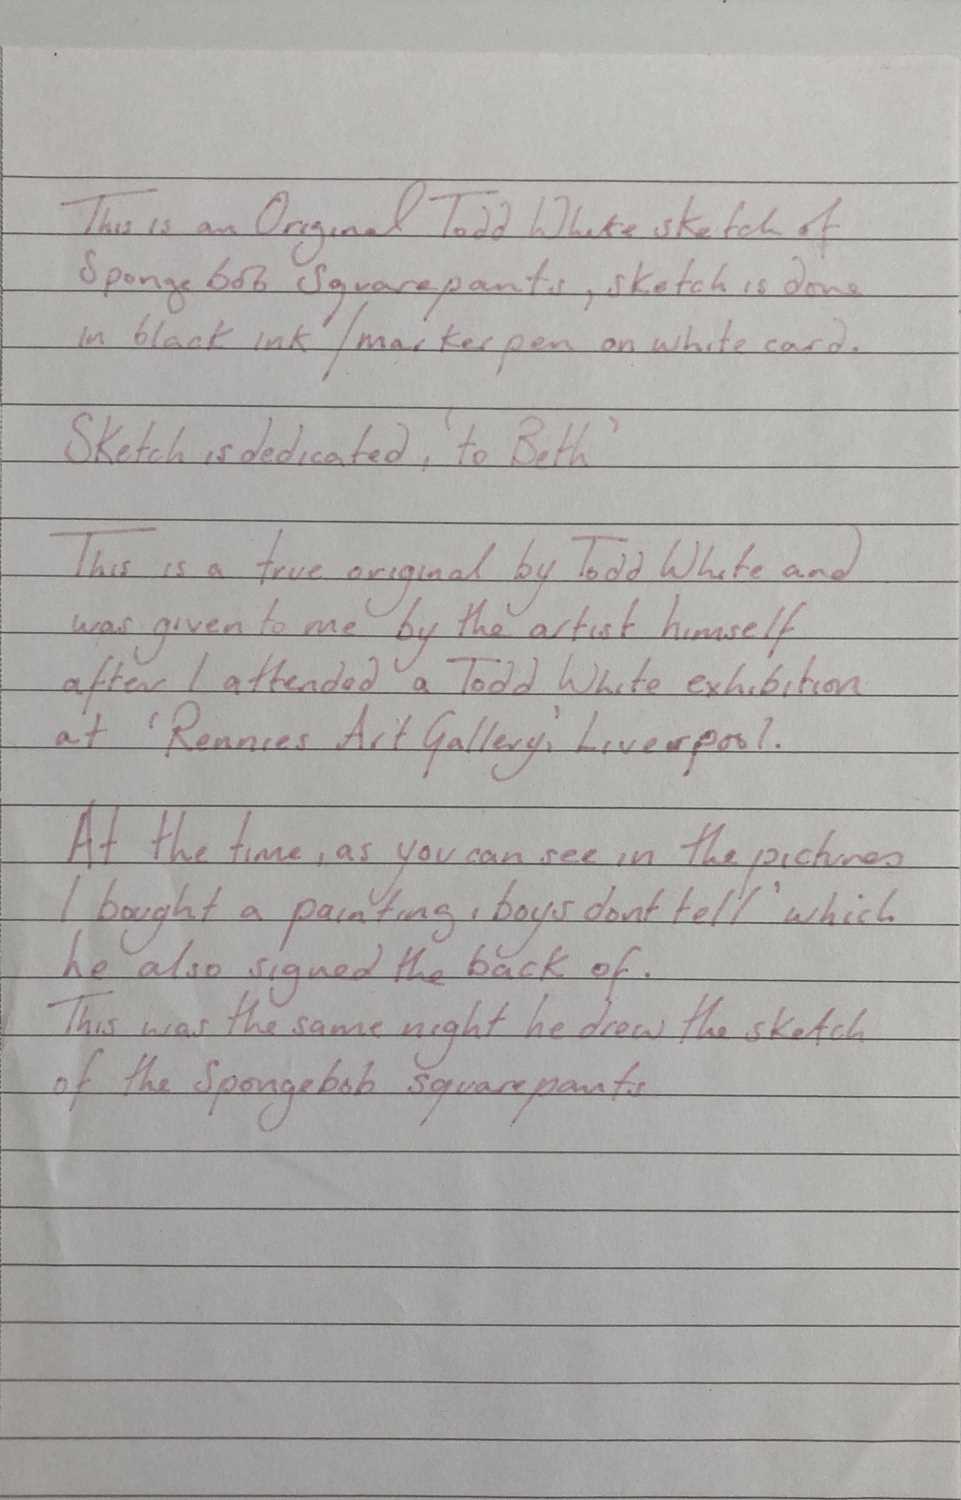 This is an Original Todd White sketch of
Spongebob Squarepants, sketch is done
in black ink / marker pen on white card.
Sketch is dedicated, 'to Beth'
This is a true original by Todd White and
was given to me by the artist himself
after I attended a Todd White exhibition
at 'Rennies Art Gallery', Liverpool.
At the time, as you can see in the pictures
I bought a painting, 'boys dont tell' which
he also signed the back of.
This was the same night he drew the sketch
of the Spongebob Squarepants